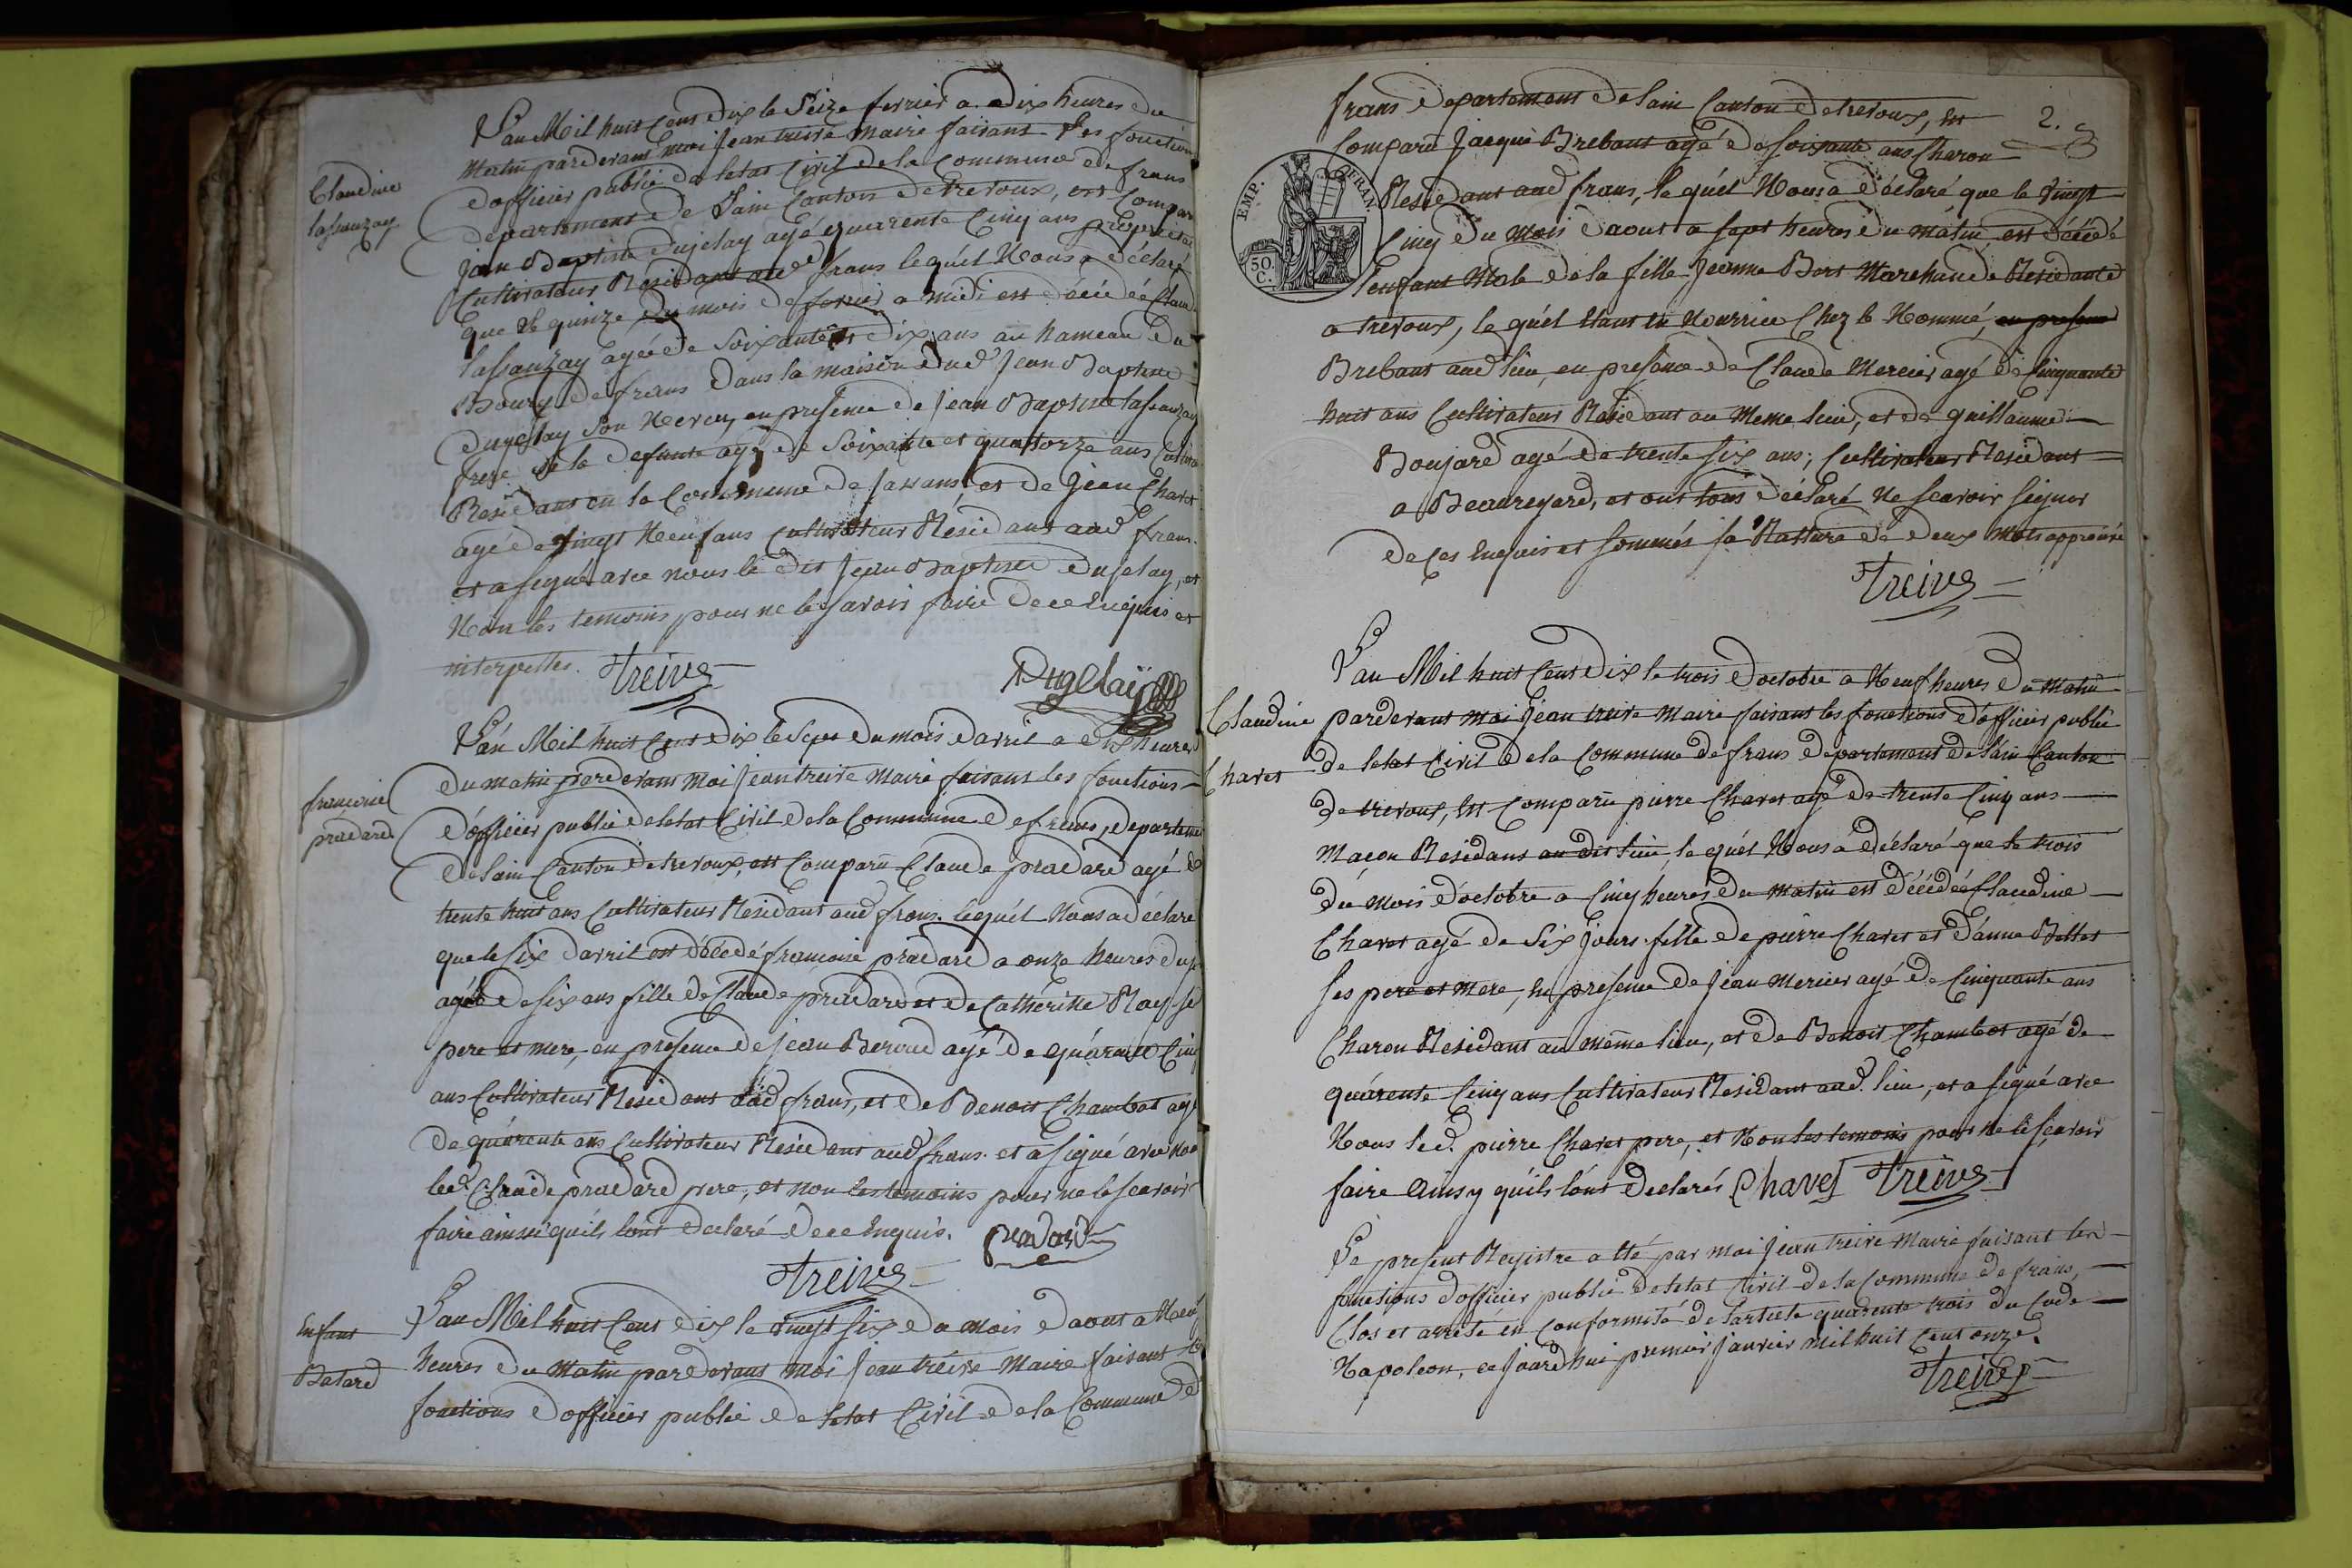 Claudine
lassauzay
L'an Mil huit Cens dix le Seize fevrier a dix heures du
Matin pardevant moi Jean treive Maire faisant les fonction
dofficier public de letat Civil de la Commune de frans
departement de Lain Canton de trevoux, est Compar
jean Baptiste Dujelay agé quarente Cinq ans
Cultivateur Residant aud frans lequél Nous a déclaré
que le quinze du mois de fevrier a midi est décédée Claud
lassauzay agée de Soixante et dix ans au hameau du
Bourg de frans dans la maison dud Jean Baptiste
Dujelay Son Neveu, en presence de jean Baptiste lassauzay
frere de la defunte agé de Soixante et quatorze ans
Residant en la Commune de Jassans et de jean Chavet
agé de vingt Neuf ans Cultivateur Résidant aud frans.
et a signé avec nous le dit Jean Baptiste Dujelay, et
Non les temoins pour ne le savoir faire de ce Enquis et
interpellés. Treive Dugelaÿ
francoise
pradard
L'an Mil huit Cent dix le Sept du mois d'avril a dix heures
du matin pardevant Moi Jean treive Maire faisant les fonctions
d'officier public de letat Civil de la Commune de frans, departeme
de Lain Canton de trevoux, est Comparu Claude pradard agé de
trente huit ans Cultivateur Residant aud frans. lequél Nous a déclaré
que le Six d'avril est décédé francoise pradard a onze heures du
agée de six ans fille de Claude pradard et de Catherine Ray se
pere et mere, en presence de jean Beroud agé de quarente Cinq
ans Cultivateur Residant aud frans, et de Benoit Chambat agé
de quarente ans Cultivateur Residant aud frans. et a signé avec nou
led. Claude pradard pere, et non les temoins pour ne le scavoir
faire ainsi quils lont declaré de ce Enquis. pradard
Treive
Enfant
Batard
L'an Mil huit Cent dix le vingt six du mois daout a Neuf
heures du Matin pardevant moi Jean treive Maire faisant le
fonctions dofficier public de letat Civil de la Commune de
2.
EMP. FRAN.
50. C.
frans departement de Lain Canton de trevoux, est
Comparu Jacque Brebant agé de soixante ans Charon
Residant aud frans, le quél Nous a déclaré que le vingt
Cinq du mois d'aout a sept heures du matin est décédé
l'enfant Male de la fille Jeanne Bort Marchande Residante
a trevoux, le quél étant en Nourrice Chez le Nommé, en presence
Brebant aud lieu, en presence de Claude Mercier agé de Cinquante
huit ans Cultivateur Residant au Meme lieu, et de guillaume
Boujard agé de trente six ans; Cultivateur Residant
a Beauregard, et ont tous déclaré Ne scavoir signer
de Ces Enquis et sommés la Rature de deux mots approuvé
Treive
Claudine
Chavet
L'an Mil huit Cent dix le trois doctobre a Neuf heures du Matin
pardevant moi Jean treive Maire faisant les fonctions d'officier public
de letat Civil de la Commune de frans departement de Lain Canton
de trevoux, Est Comparu pierre Chavet agé de trente Cinq ans
Maçon Residant au dit lieu, le quél Nous a déclaré que le trois
du mois d'octobre a Cinq heures du matin est décédée Claudine
Chavet agé de Six jours fille de pierre Chavet et d'anne Billet
ses pere et Mere, en presence de Jean Mercier agé de Cinquante ans
Charon Residant au même lieu, et de Benoit Chambat agé de
quarente Cinq ans Cultivateur Residant aud. lieu, et a signé avec
Nous led. pierre Chavet pere, et Non les temoins pour ne le scavoir
faire Ainsy qu'ils l'ont Declarés Chavet Treive
Le present Registre a été par moi Jean treive Maire faisant les
fonctions dofficier public de letat Civil de la Commune de frans,
Clos et arrêté en Conformité de l'article quarente trois du Code
Napoleon, ce jourd'hui premier Janvier mil huit Cent onze.
Treive